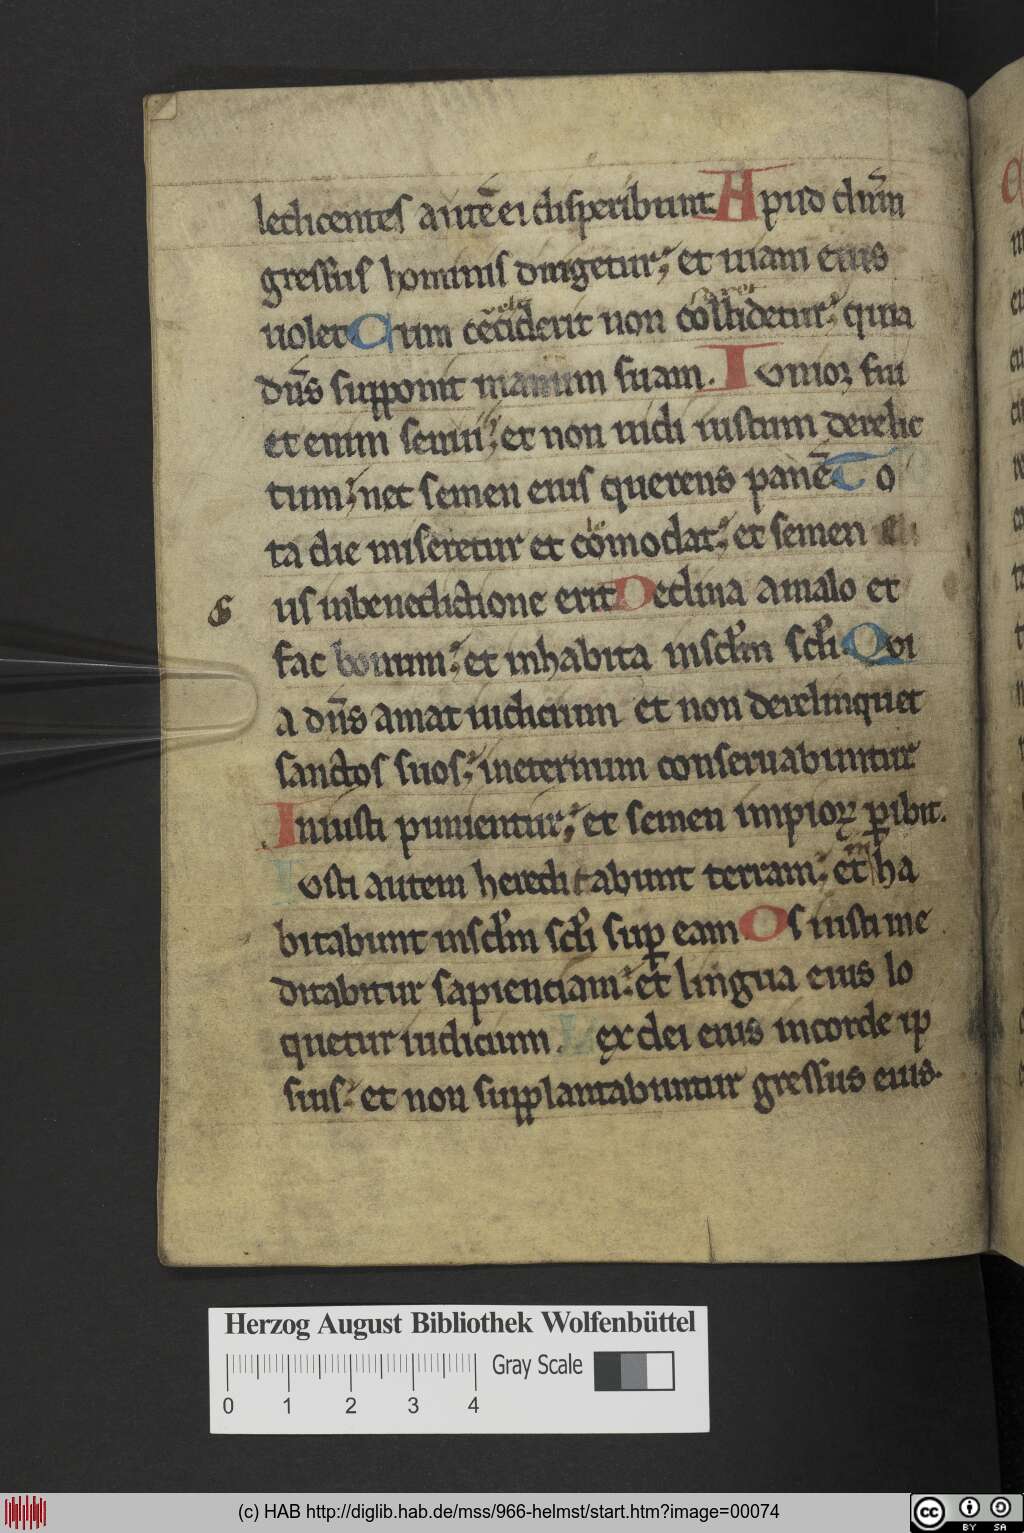 ledicentes autē ei disperibunt. Apud dn̄m
gressus hominis dirigetur; et uiam eius
uolet Cum ceciderit non collidetur; quia
dn̄s supponit manum suam. Iunior fui
et enim senui; et non uidi iustum derelic
tum; nec semen eius querens panē To
ta die miseretur et cōmodat; et semen
G
ius in benedictione erit Declina a malo et
fac bonum; et inhabita in sclm̄ scli Qui
a dn̄s amat iudicium et non derelinquet
sanctos suos; in eternum conseruabuntur
Iniusti punientur; et semen impioꝝ ꝑibit.
Iusti autem hereditabunt terram; et inha
bitabunt in sclm̄ scli suꝑ eam Os iusti me
ditabitur sapienciam; et lingua eius lo
quetur iudicium. Lex dei eius in corde ip
sius; et non supplantabuntur gressus eius.
Herzog August Bibliothek Wolfenbüttel
Gray Scale
0 1 2 3 4
(c) HAB http://diglib.hab.de/mss/966-helmst/start.htm?image=00074
cc BY SA